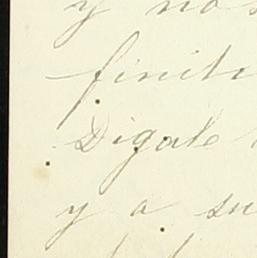 y nos
finit
Digale
y a su